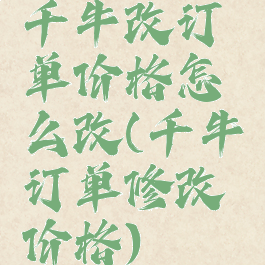 千牛改订
单价格怎
么改(千牛
订单修改
价格)